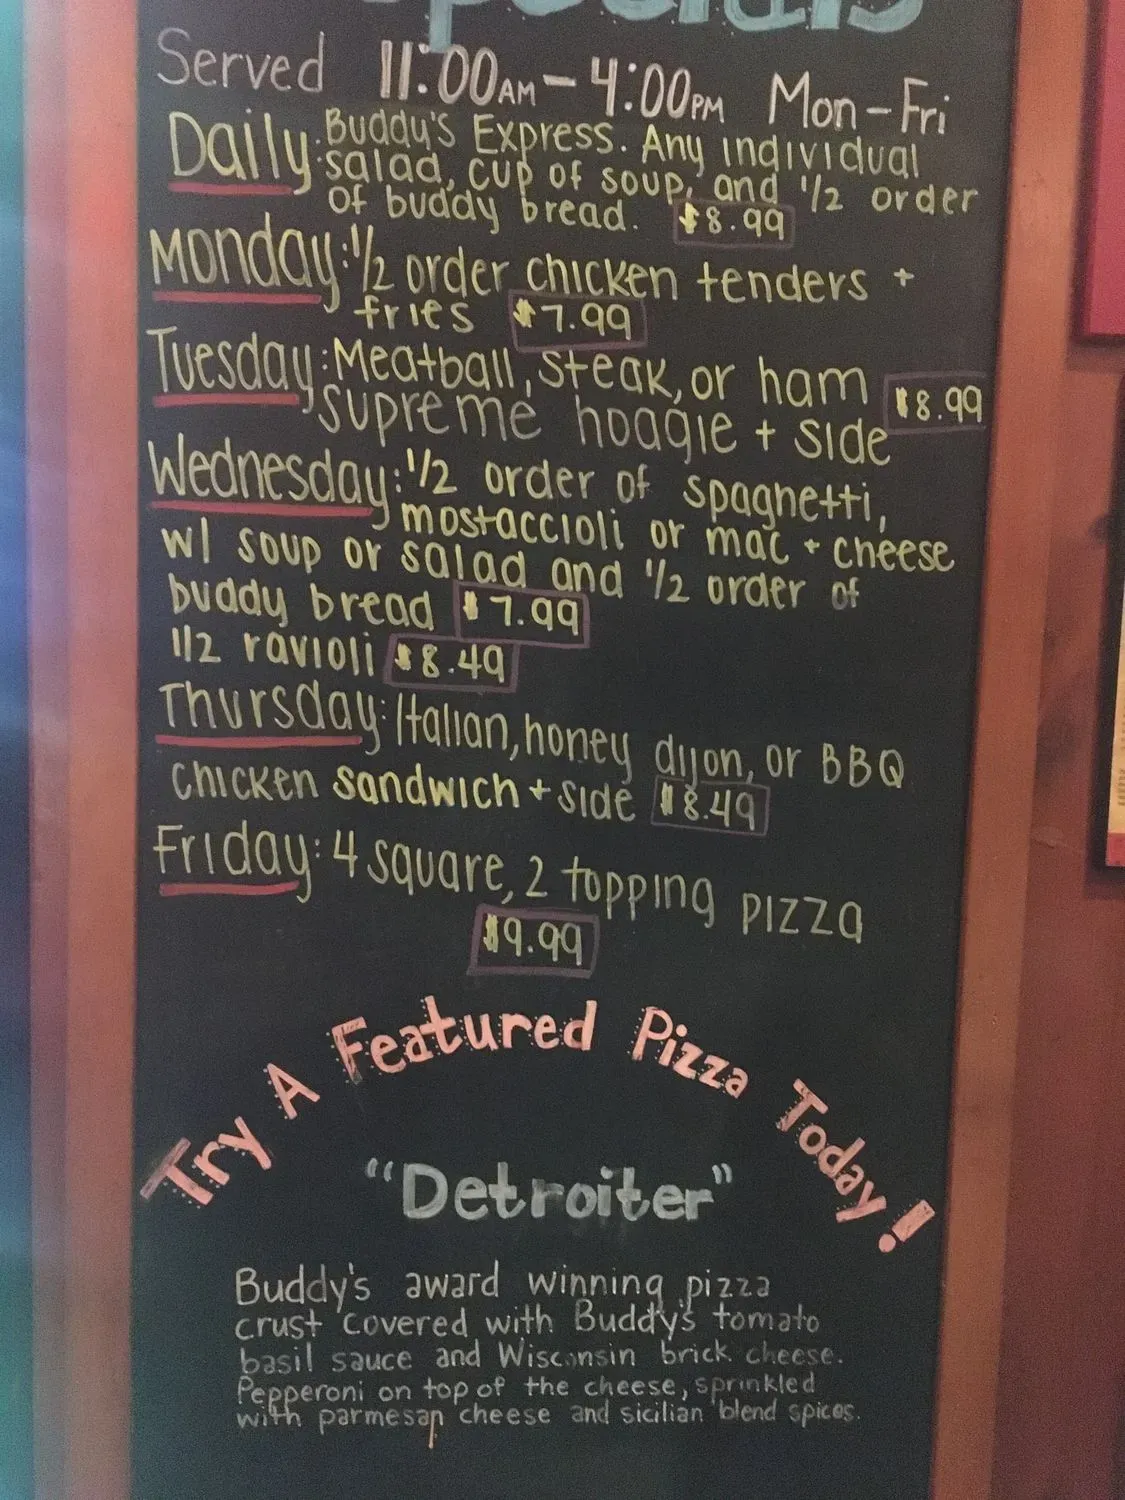 Specials
Served 11:00AM - 4:00PM Mon-Fri
Daily: Buddy's Express. Any individual
salad, cup of soup, and 1/2 order
of buddy bread. $8.99
Monday: 1/2 order chicken tenders +
fries $7.99
Tuesday: Meatball, steak, or ham
supreme hoagie + side $8.99
Wednesday: 1/2 order of spaghetti,
mostaccioli or mac + cheese
w/ soup or salad and 1/2 order of
buddy bread $7.99
1/2 ravioli $8.49
Thursday: Italian, honey dijon, or BBQ
chicken sandwich + side $8.49
Friday: 4 square, 2 topping pizza
$9.99
Try A Featured Pizza Today!
"Detroiter"
Buddy's award winning pizza
crust covered with Buddy's tomato
basil sauce and Wisconsin brick cheese.
Pepperoni on top of the cheese, sprinkled
with parmesan cheese and sicilian blend spices.